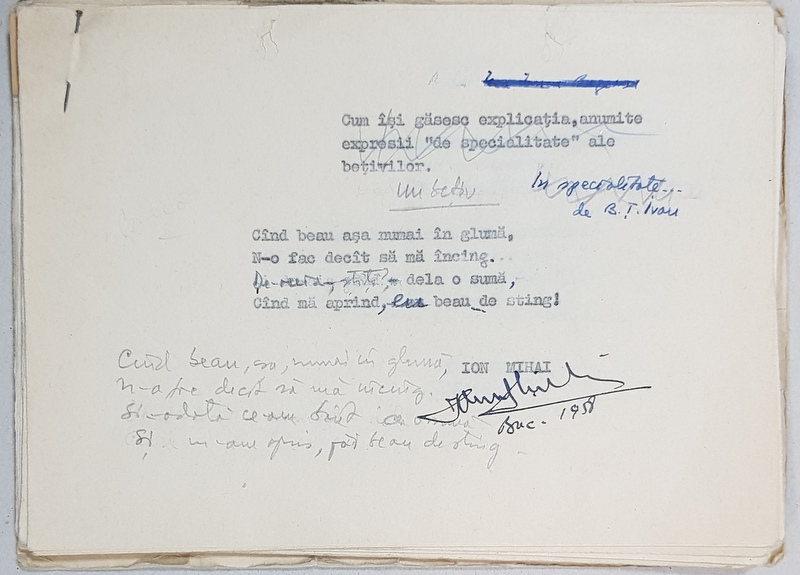 Cum își găsesc explicația,anumite
expresii "de specialitate" ale
bețivilor.
Un bețiv
În specialitate...
de B.T.Ivan
Cînd beau așa numai în glumă,
N-o fac decît să mă încing.
dela o sumă,
Cînd mă aprind, beau de sting!
Cînd beau, așa, numai în glumă,
N-o fac decît să mă încing.
Și-odată ce am băut
Și m-am aprins, păi beau de sting
ION MIHAI
Buc. 1958